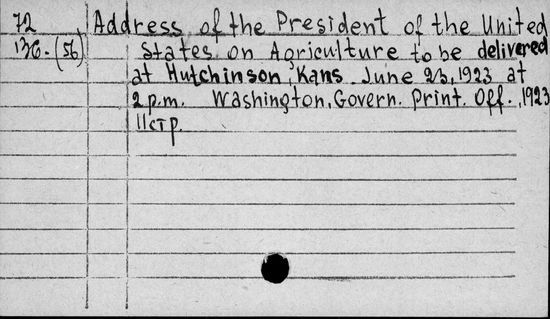 72 Address of the President of the United
136-(56) States on Agriculture to be delivered
at Hutchinson, Kans. June 23, 1923 at
2 p.m. Washington, Govern. Print. Off., 1923
11 стр.